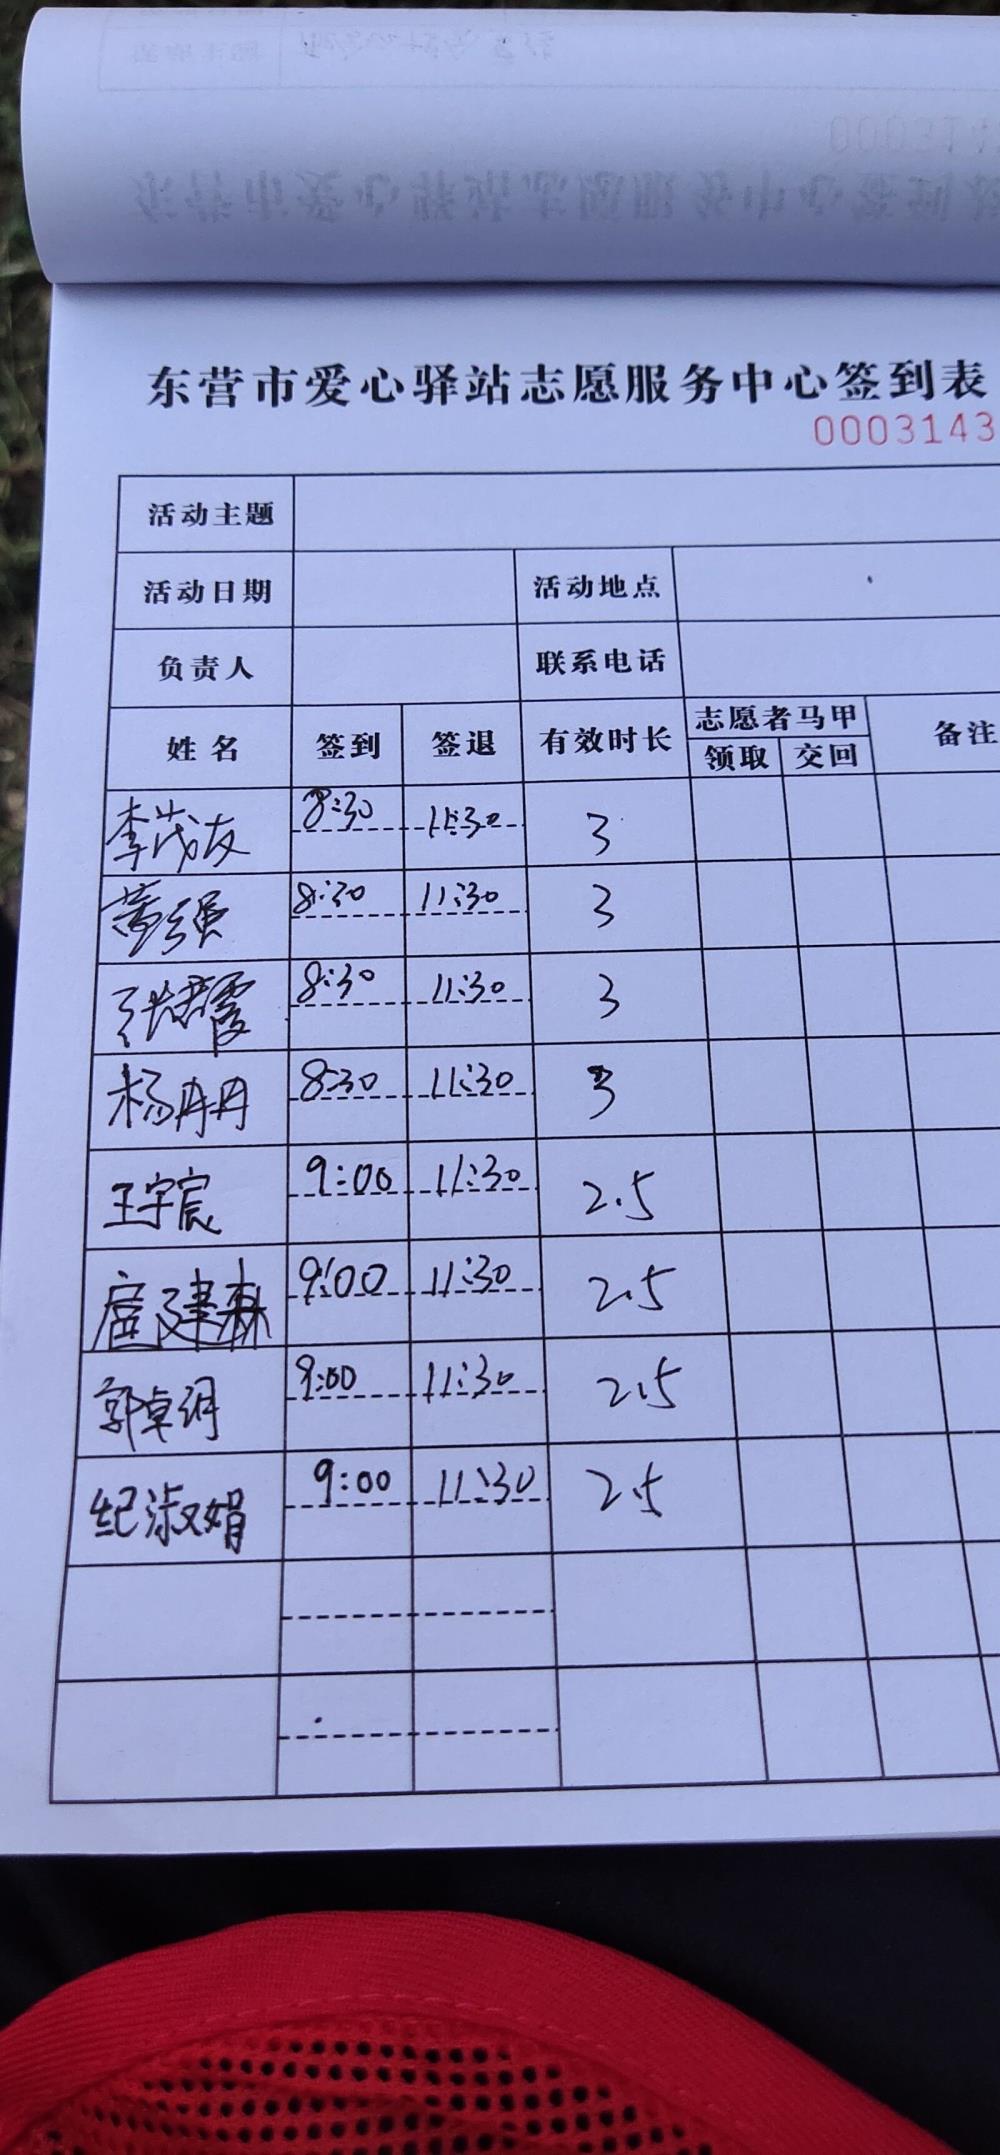 东营市爱心驿站志愿服务中心签到表
0003143
活动主题
活动日期 活动地点
负责人 联系电话
姓名 签到 签退 有效时长 志愿者马甲 领取 交回 备注
李茂友 8:30 11:30 3
黄强 8:30 11:30 3
张翠霞 8:30 11:30 3
杨丹丹 8:30 11:30 3
王宇宸 9:00 11:30 2.5
扈建森 9:00 11:30 2.5
郭卓润 9:00 11:30 2.5
纪淑娟 9:00 11:30 2.5